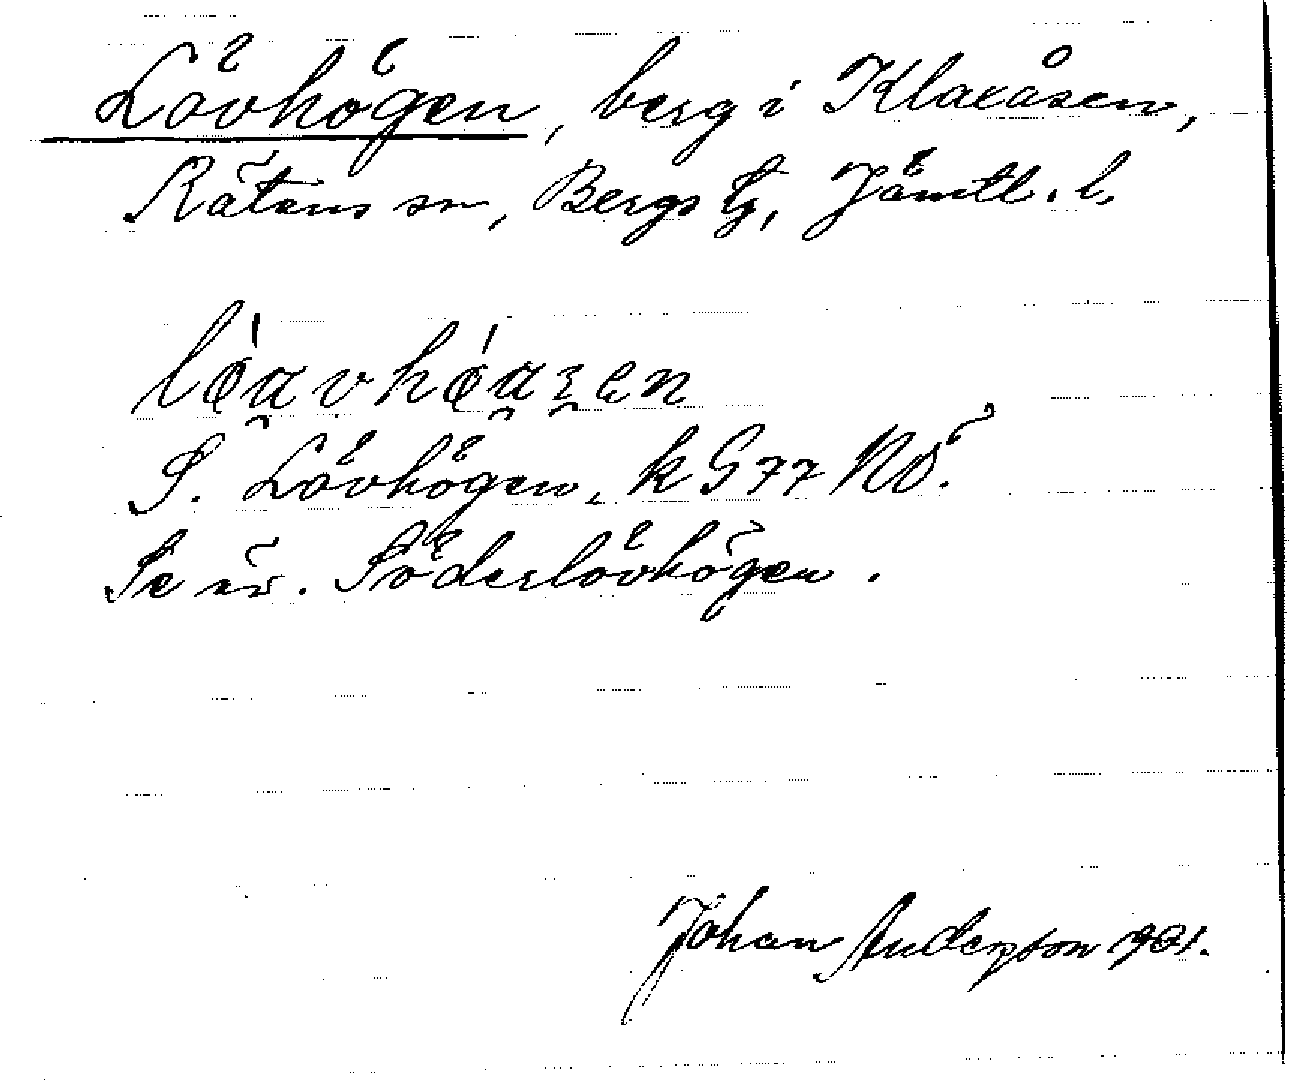 Lövhögen, berg i Klaxåsen,
Rätans sn, Bergs tg, Jämtl. l.
S. Lövhögen. k G 77 NÖ.
Se äv. Söderlövhögen.
Johan Anderpson 1931.